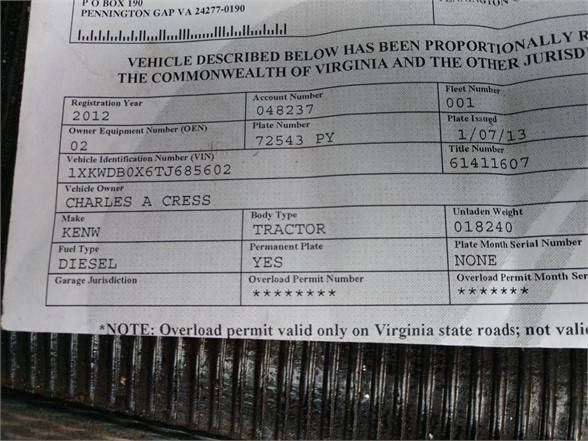 P O BOX 190
PENNINGTON GAP VA 24277-0190
PENNINGTON
VEHICLE DESCRIBED BELOW HAS BEEN PROPORTIONALLY R
THE COMMONWEALTH OF VIRGINIA AND THE OTHER JURISD
Registration Year Account Number Fleet Number
2012 048237 001
Owner Equipment Number (OEN) Plate Number Plate Issued
02 72543 PY 1/07/13
Vehicle Identification Number (VIN) Title Number
1XKWDB0X6TJ685602 61411607
Vehicle Owner
CHARLES A CRESS
Make Body Type Unladen Weight
KENW TRACTOR 018240
Fuel Type Permanent Plate Plate Month Serial Number
DIESEL YES NONE
Garage Jurisdiction Overload Permit Number Overload Permit Month Ser
******** *******
*NOTE: Overload permit valid only on Virginia state roads; not valid